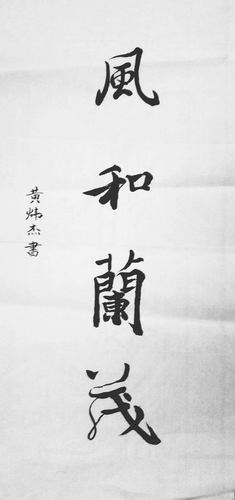 風和蘭茂
黃煒杰書